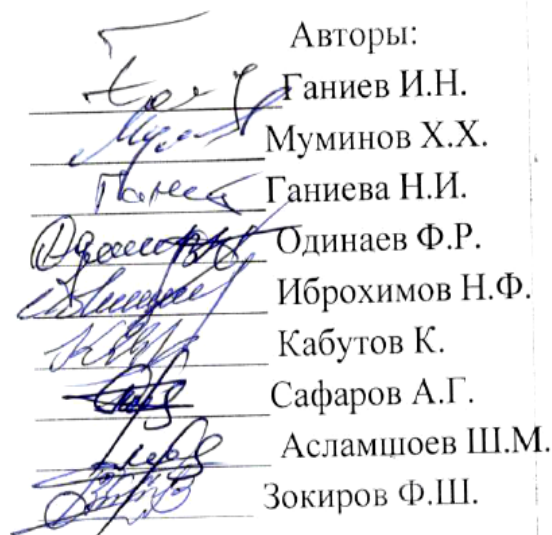 Авторы:
Ганиев И.Н.
Муминов Х.Х.
Ганиева Н.И.
Одинаев Ф.Р.
Иброхимов Н.Ф.
Кабутов К.
Сафаров А.Г.
Асламшоев Ш.М.
Зокиров Ф.Ш.